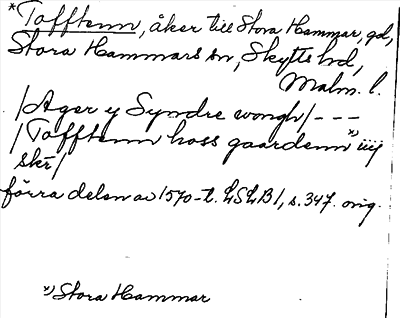 *Tofftenn, åker till Stora Hammar, gd,
Stora Hammars sn, Skytts hd,
Malm. l.
/Ager y Syndre wongh/ - - -
/Tofftenn hoss gaardenn x) iiij
skr/
förra delen av 1570-t. LSLB1, s. 347. orig.
x) Stora Hammar